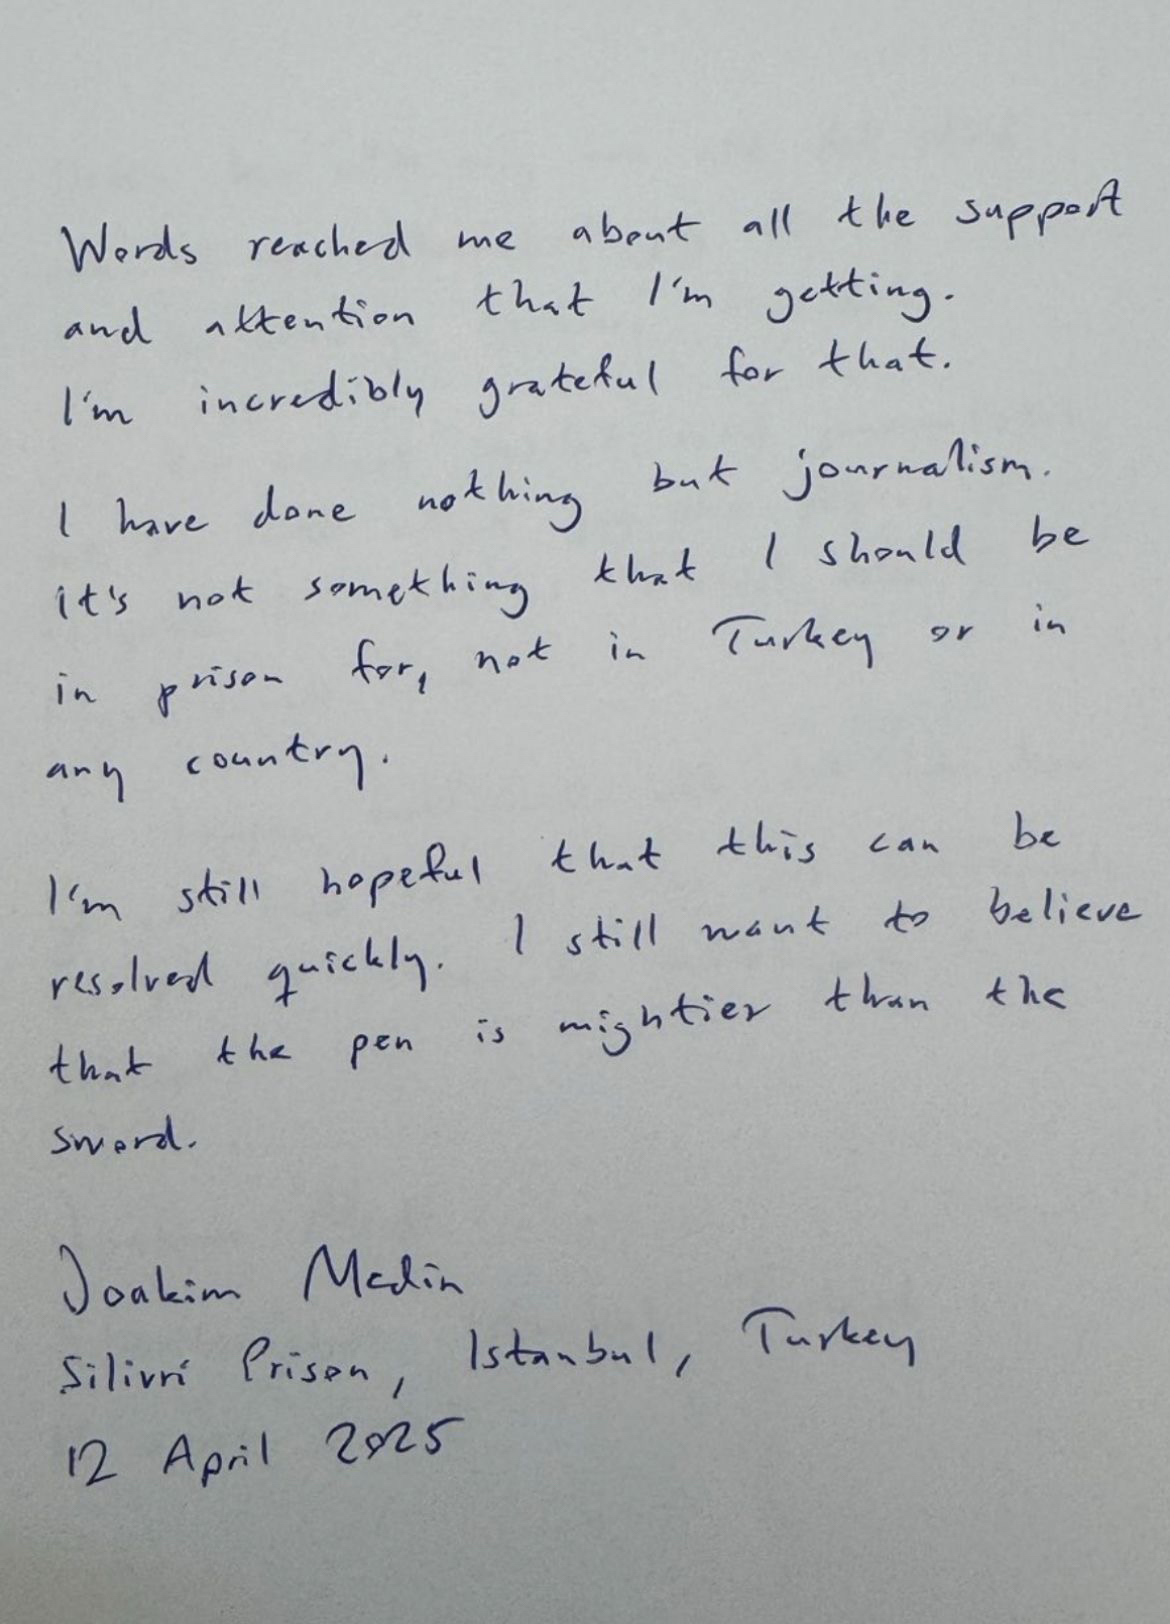 Words reached me about all the support
and attention that I'm getting.
I'm incredibly grateful for that.
I have done nothing but journalism.
it's not something that I should be
in prison for, not in Turkey or in
any country.
I'm still hopeful that this can be
resolved quickly. I still want to believe
that the pen is mightier than the
sword.
Joakim Medin
Silivri Prison, Istanbul, Turkey
12 April 2025